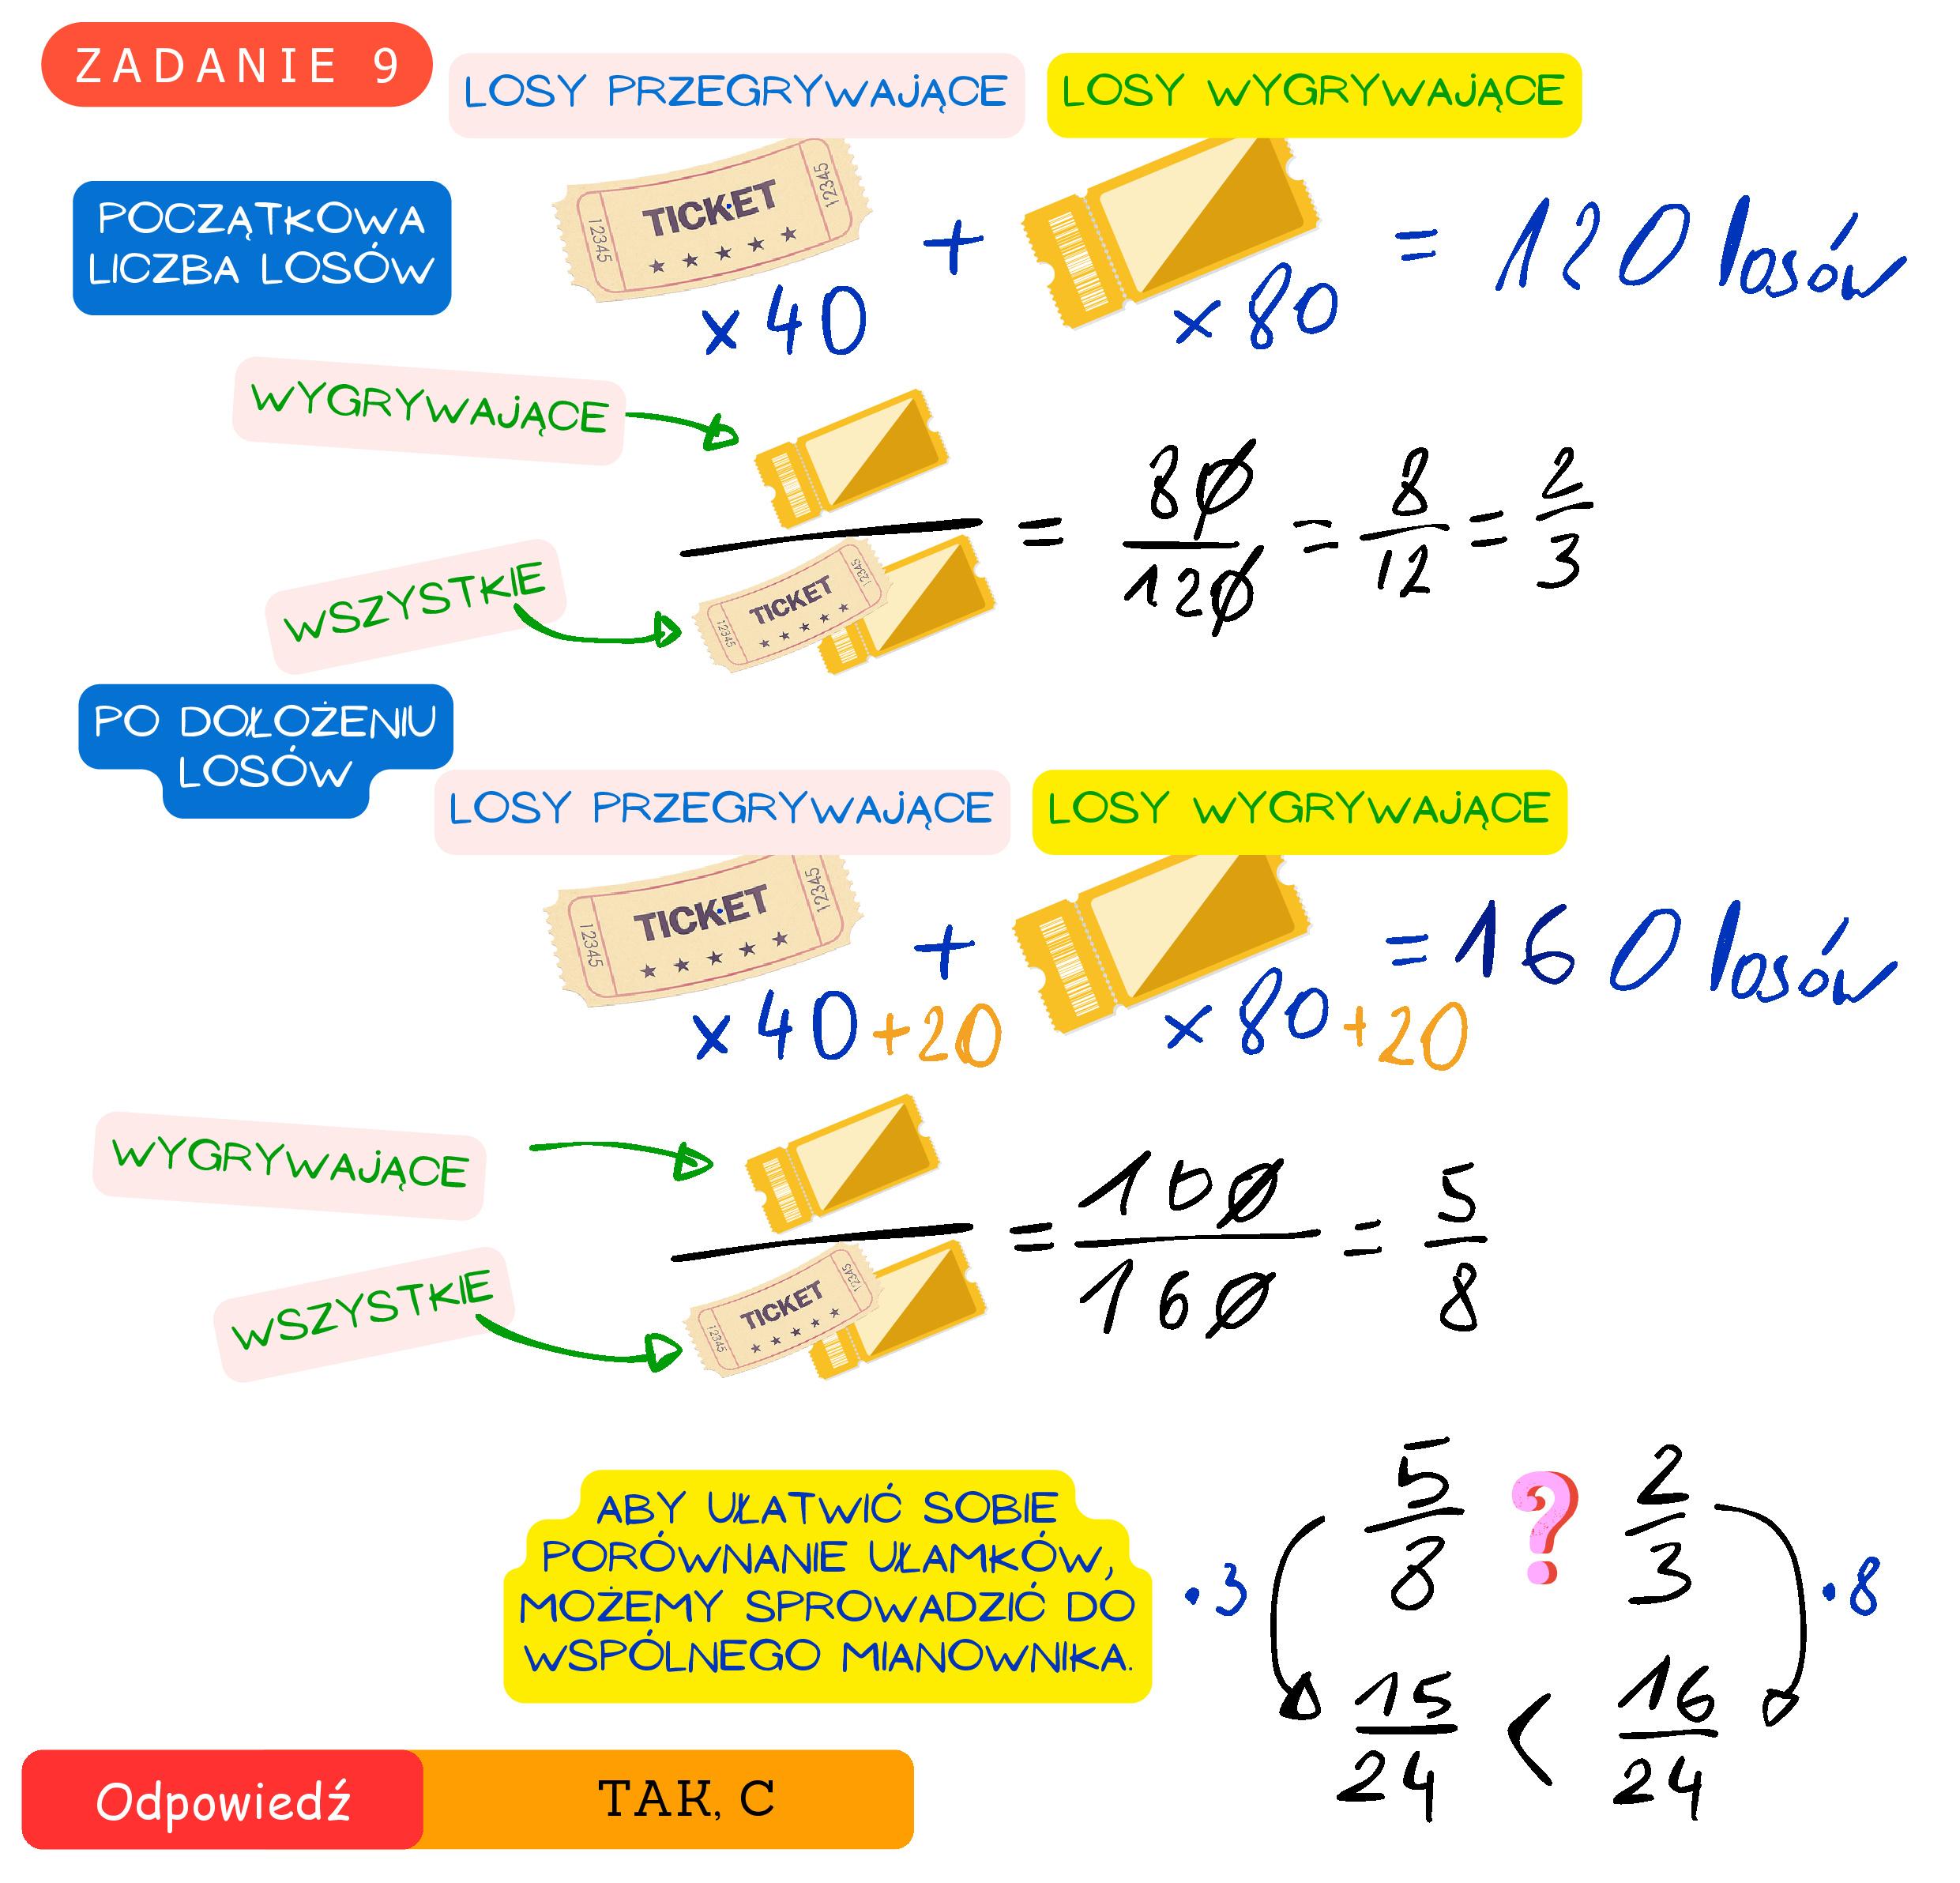 ZADANIE 9
LOSY PRZEGRYWAJĄCE
LOSY WYGRYWAJĄCE
POCZĄTKOWA
LICZBA LOSÓW
12345 TICKET 12345
x 40 + x 80 = 120 losów
WYGRYWAJĄCE
WSZYSTKIE
12345 TICKET 12345
= 80/120 = 8/12 = 2/3
PO DOŁOŻENIU
LOSÓW
LOSY PRZEGRYWAJĄCE
LOSY WYGRYWAJĄCE
12345 TICKET 12345
x 40 + 20 + x 80 + 20 = 160 losów
WYGRYWAJĄCE
WSZYSTKIE
12345 TICKET 12345
= 100/160 = 5/8
ABY UŁATWIĆ SOBIE
PORÓWNANIE UŁAMKÓW,
MOŻEMY SPROWADZIĆ DO
WSPÓLNEGO MIANOWNIKA.
5/8 ? 2/3
·3 ·8
15/24 < 16/24
Odpowiedź
TAK, C